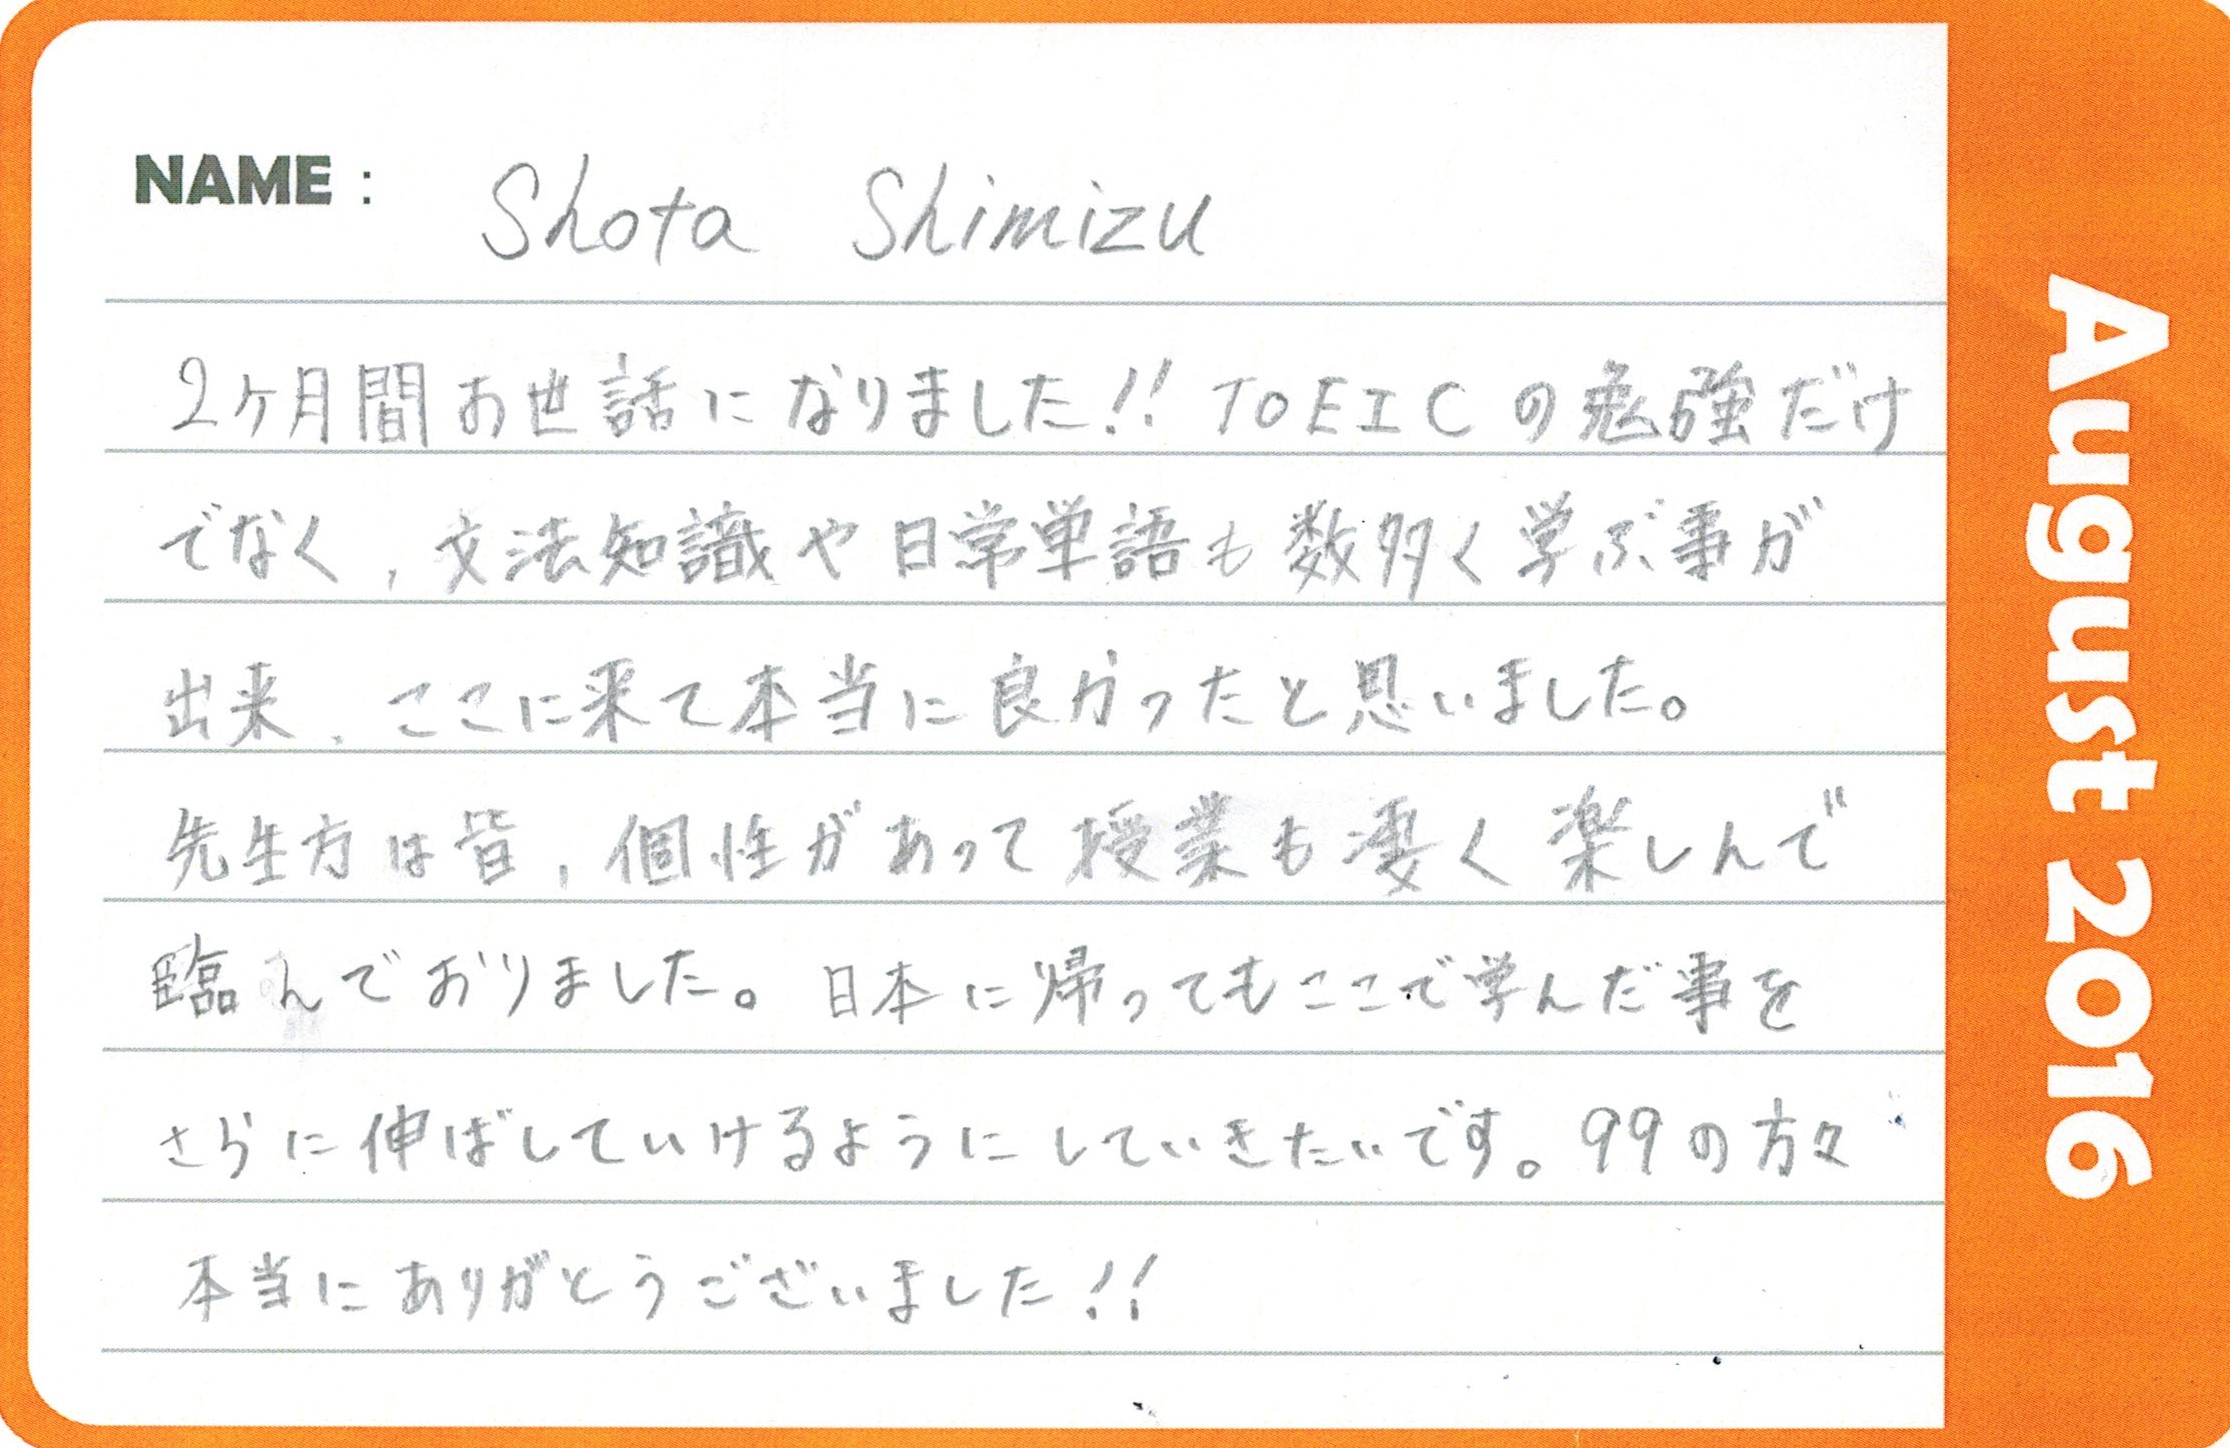 NAME : Shota Shimizu
2ヶ月間お世話になりました!! TOEICの勉強だけ
でなく,文法知識や日常単語も数多く学ぶ事が
出来、ここに来て本当に良かったと思いました。
先生方は皆,個性があって授業も凄く楽しんで
臨んでおりました。日本に帰ってもここで学んだ事を
さらに伸ばしていけるようにしていきたいです。99の方々
本当にありがとうございました!!
August 2016